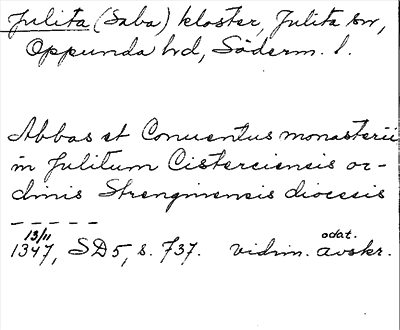 Julita (Saba) kloster, Julita sn,
Oppunda hd, Söderm. l.
Abbas et Conuentus monasterii
in Julitum Cisterciensis or-
dinis Strenginensis diocesis
-----
13/11 odat.
1347, SD5, s. 737. vidim. avskr.